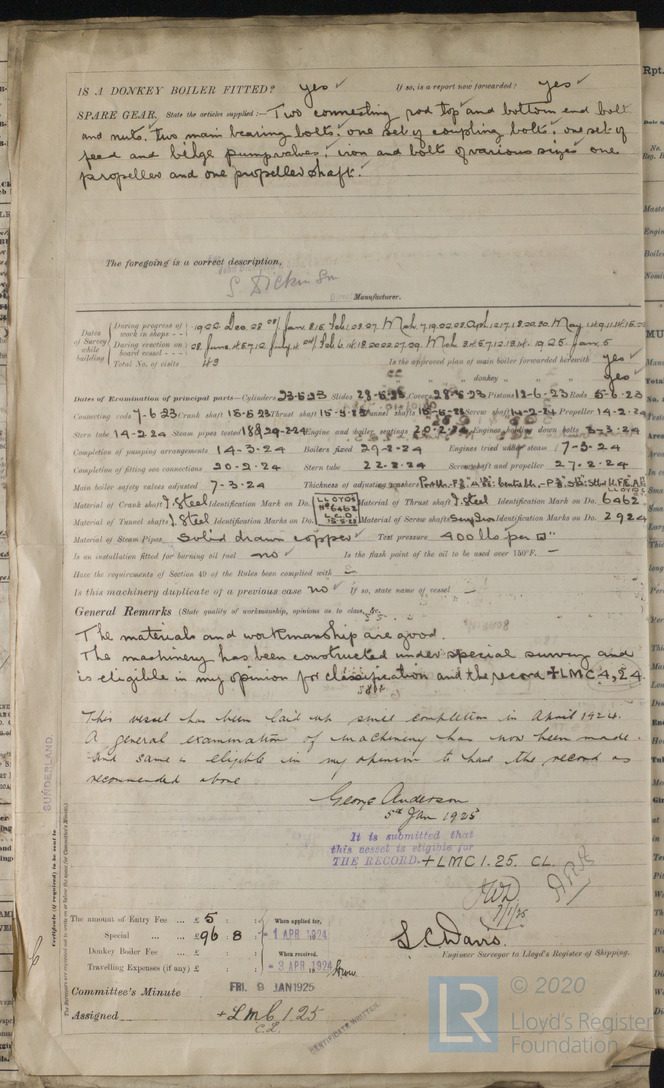 IS A DONKEY BOILER FITTED? yes ✓ If so, is a report now forwarded? yes ✓
SPARE GEAR. State the articles supplied:— Two connecting rod top and bottom end bolt
and nuts, two main bearing bolts, one set of coupling bolts, one set of
feed and bilge pump valves, iron and bolts of various sizes one
propeller and one propeller shaft.
The foregoing is a correct description,
S. Dickinson
Manufacturer.
Dates of Survey while building
During progress of work in shops - -
During erection on board vessel - - -
Total No. of visits 43
Is the approved plan of main boiler forwarded herewith yes ✓
" " " donkey " " " yes
Dates of Examination of principal parts—Cylinders 23-5-23 Slides 28-5-23 Covers 28-5-23 Pistons 12-6-23 Rods 5-6-23
Connecting rods 7-6-23 Crank shaft 15-5-23 Thrust shaft 15-5-23 Tunnel shafts 15-5-23 Screw shaft 14-2-24 Propeller 14-2-24
Stern tube 14-2-24 Steam pipes tested Engine and boiler seatings 20-2-24 Engines holding down bolts 3-3-24
Completion of pumping arrangements 14-3-24 Boilers fixed 29-2-24 Engines tried under steam 7-3-24
Completion of fitting sea connections 20-2-24 Stern tube 22-2-24 Screw shaft and propeller 27-2-24
Main boiler safety valves adjusted 7-3-24 Thickness of adjusting washers
Material of Crank shaft I. Steel Identification Mark on Do. LLOYDS No 6462 L.C.D. 15-5-23 Material of Thrust shaft I. Steel Identification Mark on Do. LLOYDS 6462
Material of Tunnel shafts I. Steel Identification Marks on Do. Material of Screw shafts Identification Marks on Do. 2924
Material of Steam Pipes Solid drawn copper ✓ Test pressure 400 lbs per □"
Is an installation fitted for burning oil fuel no ✓ Is the flash point of the oil to be used over 150°F. —
Have the requirements of Section 49 of the Rules been complied with —
Is this machinery duplicate of a previous case no ✓ If so, state name of vessel —
General Remarks (State quality of workmanship, opinions as to class, &c.
The materials and workmanship are good.
The machinery has been constructed under special survey and
is eligible in my opinion for classification and the record +LMC 4,24.
This vessel has been laid up since completion in April 1924.
A general examination of machinery has now been made
and same is eligible in my opinion to have the record as
recommended above
George Anderson
5th Jan 1925
It is submitted that
this vessel is eligible for
THE RECORD. +LMC 1.25. CL.
7/1/25
The amount of Entry Fee ... £ 5 : : When applied for,
Special ... ... £ 96 : 8 : 1 APR 1924
Donkey Boiler Fee ... £ : : When received,
Travelling Expenses (if any) £ : : 3 APR 1924
S. C. Davis.
Engineer Surveyor to Lloyd's Register of Shipping.
Committee's Minute FRI. 9 JAN 1925
Assigned + LMC 1.25
C.L.
CERTIFICATE WRITTEN
SUNDERLAND.
Certificate (if required) to be sent to
The Surveyors are requested not to write on or below the space for Committee's Minute.
© 2020
Lloyd's Register
Foundation
LR